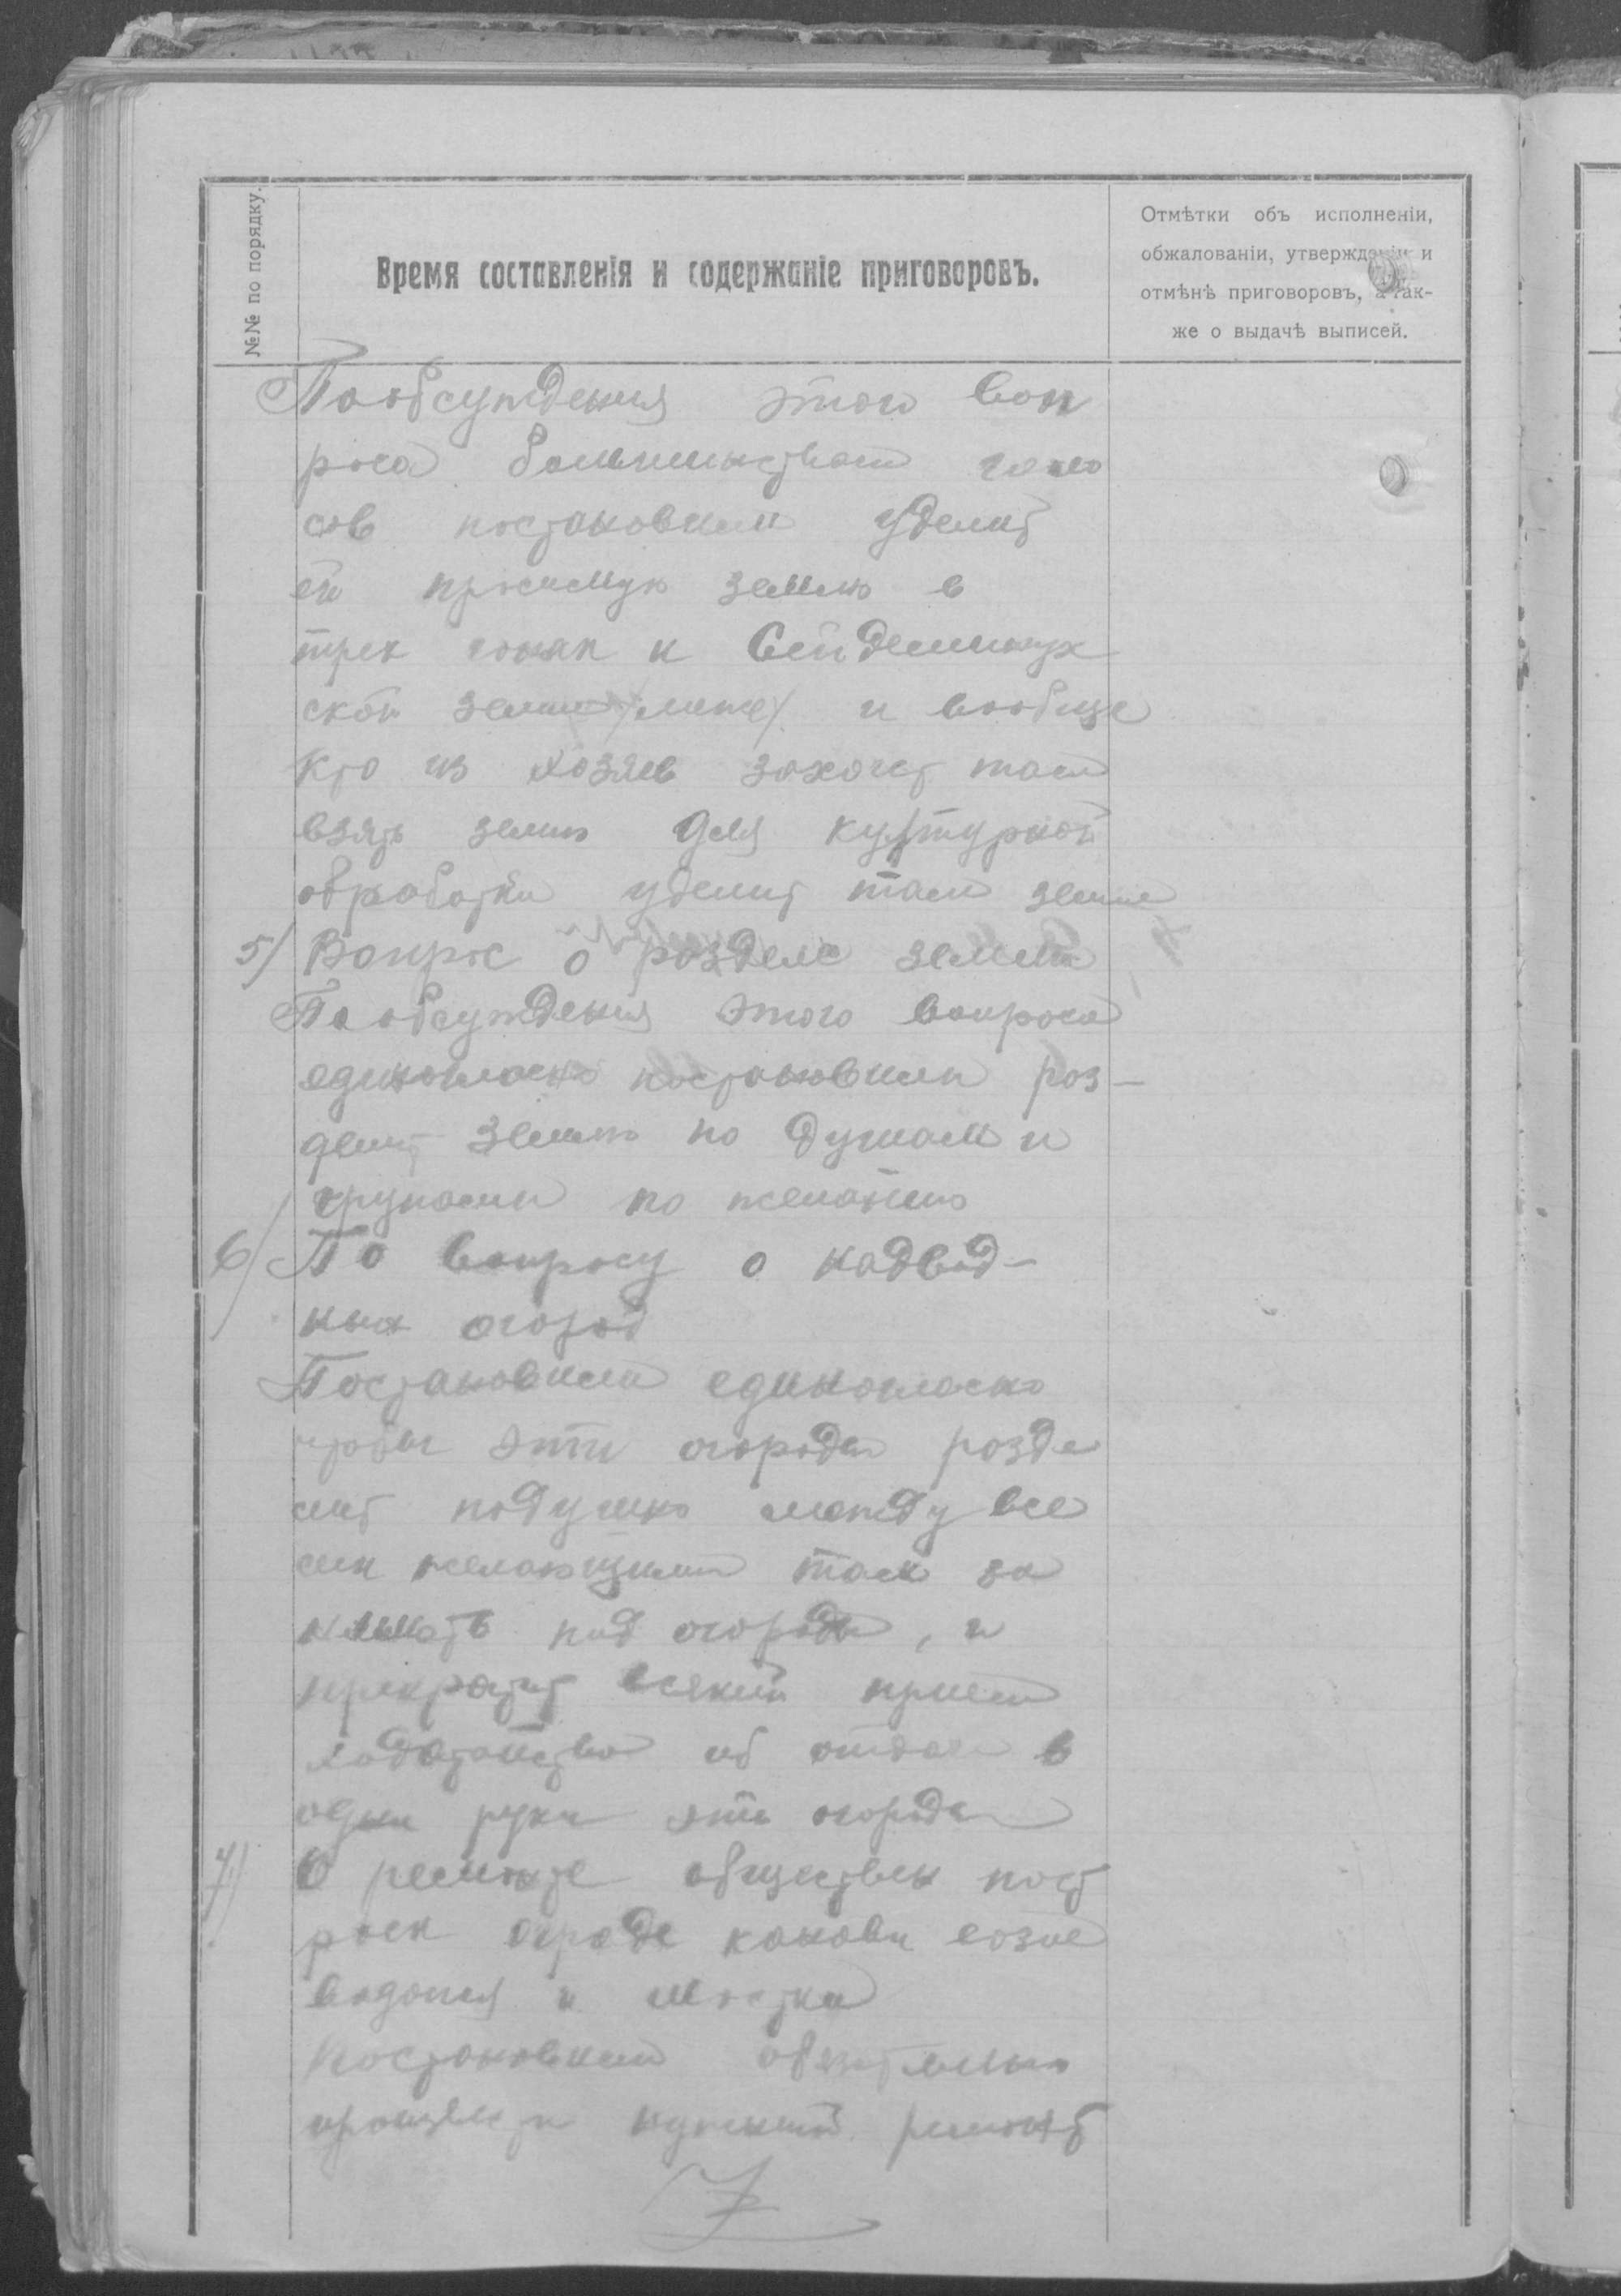 №№ по порядку.
Время составленія и содержаніе приговоровъ.
Отмѣтки объ исполненіи,
обжалованіи, утвержденіи и
отмѣнѣ приговоровъ, а так-
же о выдачѣ выписей.
По обсуждения этого воп
роса большинством голо
сов постановили уделит
ей просимую землю в
трех к
ской земли /меже/ и вообще
кто из хозяев захочет там
взять землю для культурной
обработки уделит там земли
5/ Вопрос о розделе земли
По обсуждения этого вопроса
единогласно постановили роз-
делит землю по душам и
групами по желанию
6/ По вопросу о надвод-
ных огород
Постановили единогласно
чтобы эти огороди розде
лит подушно между все
ми желающими там за
нимать под огороди, и
прекратит всякий прием
ходатайства об отдаче в
одни руки эти огороди
7/ О ремонте обществен пост
роек ограде канави возле
водопоя и мостка
постановили обязательно
произвести нужний ремонт